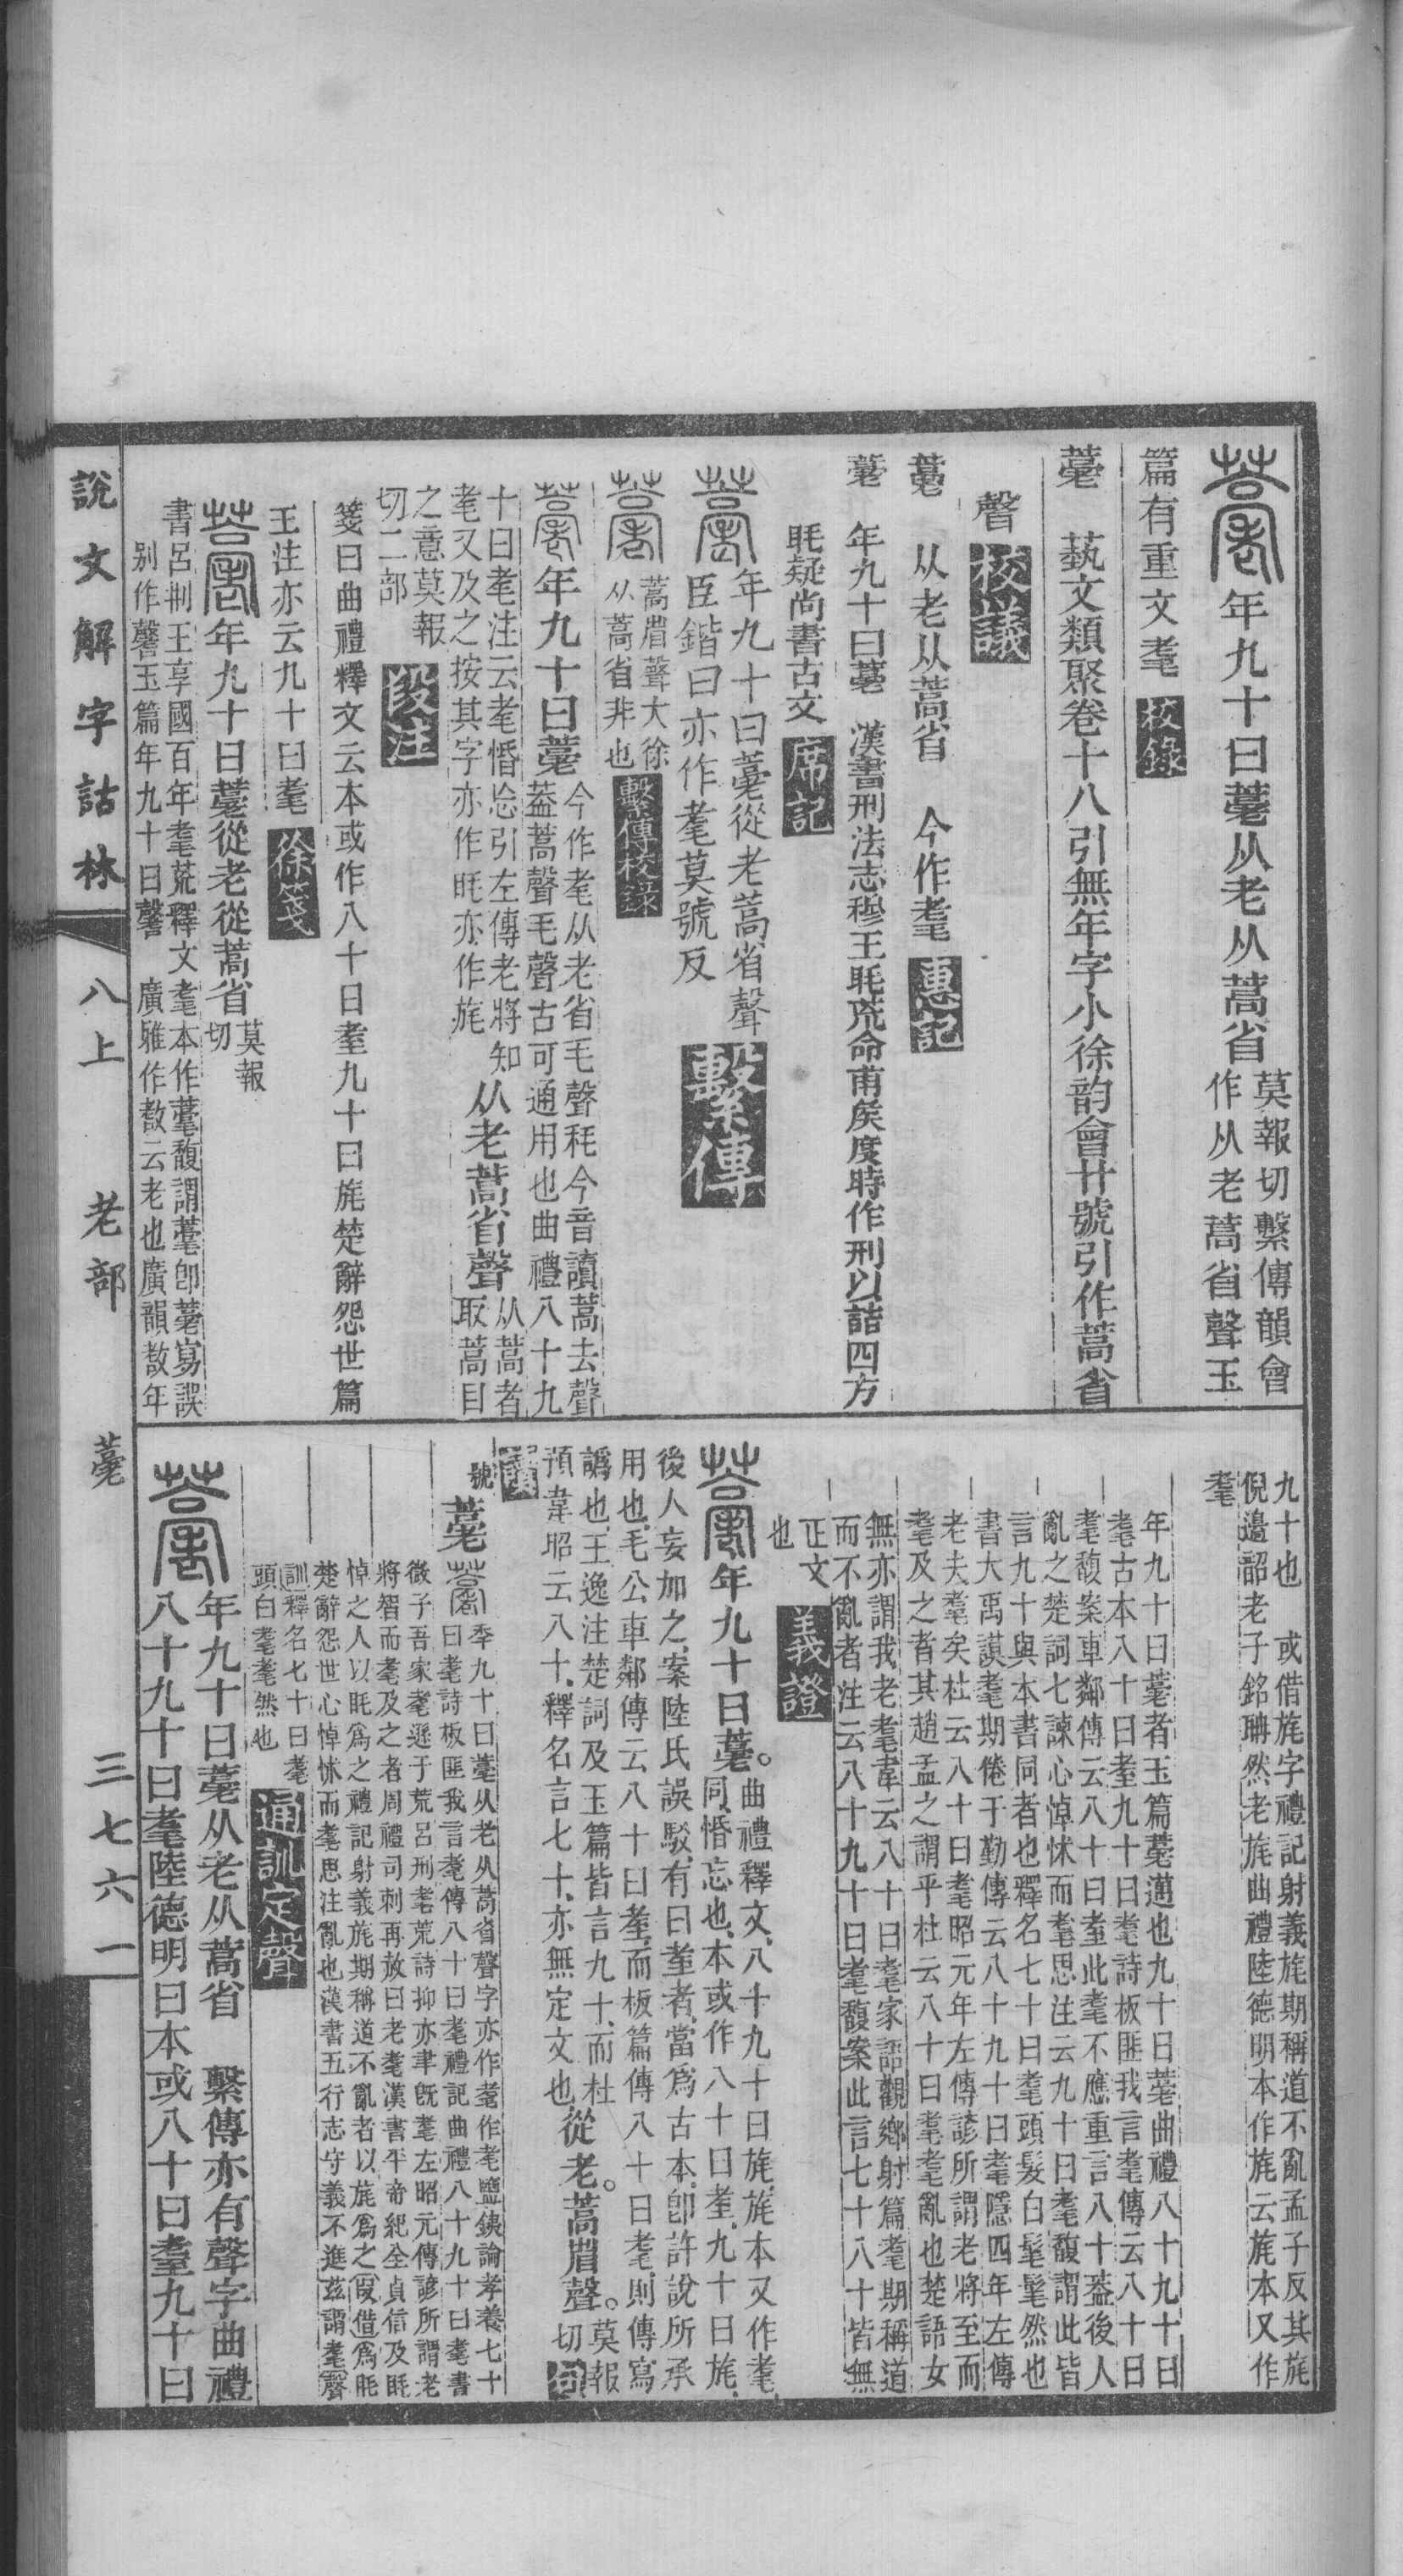 年九十曰薹从老从蒿省莫報切繫傳韻會
作从老蒿省聲玉
篇有重文耄 校錄
薹 藝文類聚卷十八引無年字小徐韵會廿號引作蒿省
聲 校議
薹 从老从蒿省 今作耄 惠記
薹 年九十曰薹 漢書刑法志穆王眊荒命甫矦度時作刑以詰四方
眊疑尚書古文 席記
年九十曰薹從老蒿省聲
臣鍇曰亦作耄莫號反 繫傳
蒿眉聲大徐
从蒿省非也 繫傳校錄
年九十曰薹今作耄从老省毛聲秏今音讀蒿去聲
葢蒿聲毛聲古可通用也曲禮八十九
十曰耄注云耄惛忘引左傳老將知
耄又及之按其字亦作眊亦作旄从老蒿省聲从蒿者
取蒿目
之意莫報
切二部 段注
箋曰曲禮釋文云本或作八十曰耋九十曰旄楚辭怨世篇
王注亦云九十曰耄 徐箋
年九十曰薹從老從蒿省莫報
切
書呂刑王享國百年耄荒釋文耄本作薹馥謂薹卽薹寫誤
别作馨玉篇年九十曰馨 廣雅作㪍云老也廣韻㪍年
九十也 或借旄字禮記射義旄期稱道不亂孟子反其旄
倪邊韶老子銘聃然老旄曲禮陸德明本作旄云旄本又作
耄
年九十曰薹者玉篇薹邁也九十曰薹曲禮八十九十曰
耄古本八十曰耋九十曰耄詩板匪我言耄傳云八十曰
耄馥案車鄰傳云八十曰耋此耄不應重言八十葢後人
亂之楚詞七諫心悼怵而耄思注云九十曰耄馥謂此皆
言九十與本書同者也釋名七十曰耄頭髮白耄耄然也
書大禹謨耄期倦于勤傳云八十九十曰耄隱四年左傳
老夫耄矣杜云八十曰耄昭元年左傳諺所謂老將至而
耄及之者其趙孟之謂乎杜云八十曰耄耄亂也楚語女
無亦謂我老耄韋云八十曰耄家語觀鄉射篇耄期稱道
而不亂者注云八十九十曰耄馥案此言七十八十皆無
正文
也 義證
年九十曰薹。曲禮釋文、八十九十曰旄、旄本又作耄
同、惛忘也、本或作八十曰耋、九十曰旄、
後人妄加之、案陸氏誤駁、有曰耋者、當爲古本、卽許說所承
用也、毛公車鄰傳云八十曰耋、而板篇傳八十曰耄、則傳寫
譌也、王逸注楚詞及玉篇皆言九十、而杜
預韋昭云八十、釋名言七十、亦無定文也、從老。蒿眉聲。莫報
切
號 薹 秊九十曰薹从老从蒿省聲字亦作耄作耄鹽鐵論孝養七十
曰耄詩板匪我言耄傳八十曰耄禮記曲禮八十九十曰耄書
微子吾家耄遜于荒呂刑耄荒詩抑亦聿旣耄左昭元傳諺所謂老
將智而耄及之者周禮司刺再赦曰老耄漢書平帝紀全貞信及眊
悼之人以眊爲之禮記射義旄期稱道不亂者以旄爲之叚借爲眊
楚辭怨世心悼怵而耄思注亂也漢書五行志守義不進茲謂耄聲
訓釋名七十曰耄
頭白耄耄然也 通訓定聲
年九十曰薹从老从蒿省 繫傳亦有聲字曲禮
八十九十曰耄陸德明曰本或八十曰耋九十曰
說文解字詁林 八上 老部 薹 三七六一